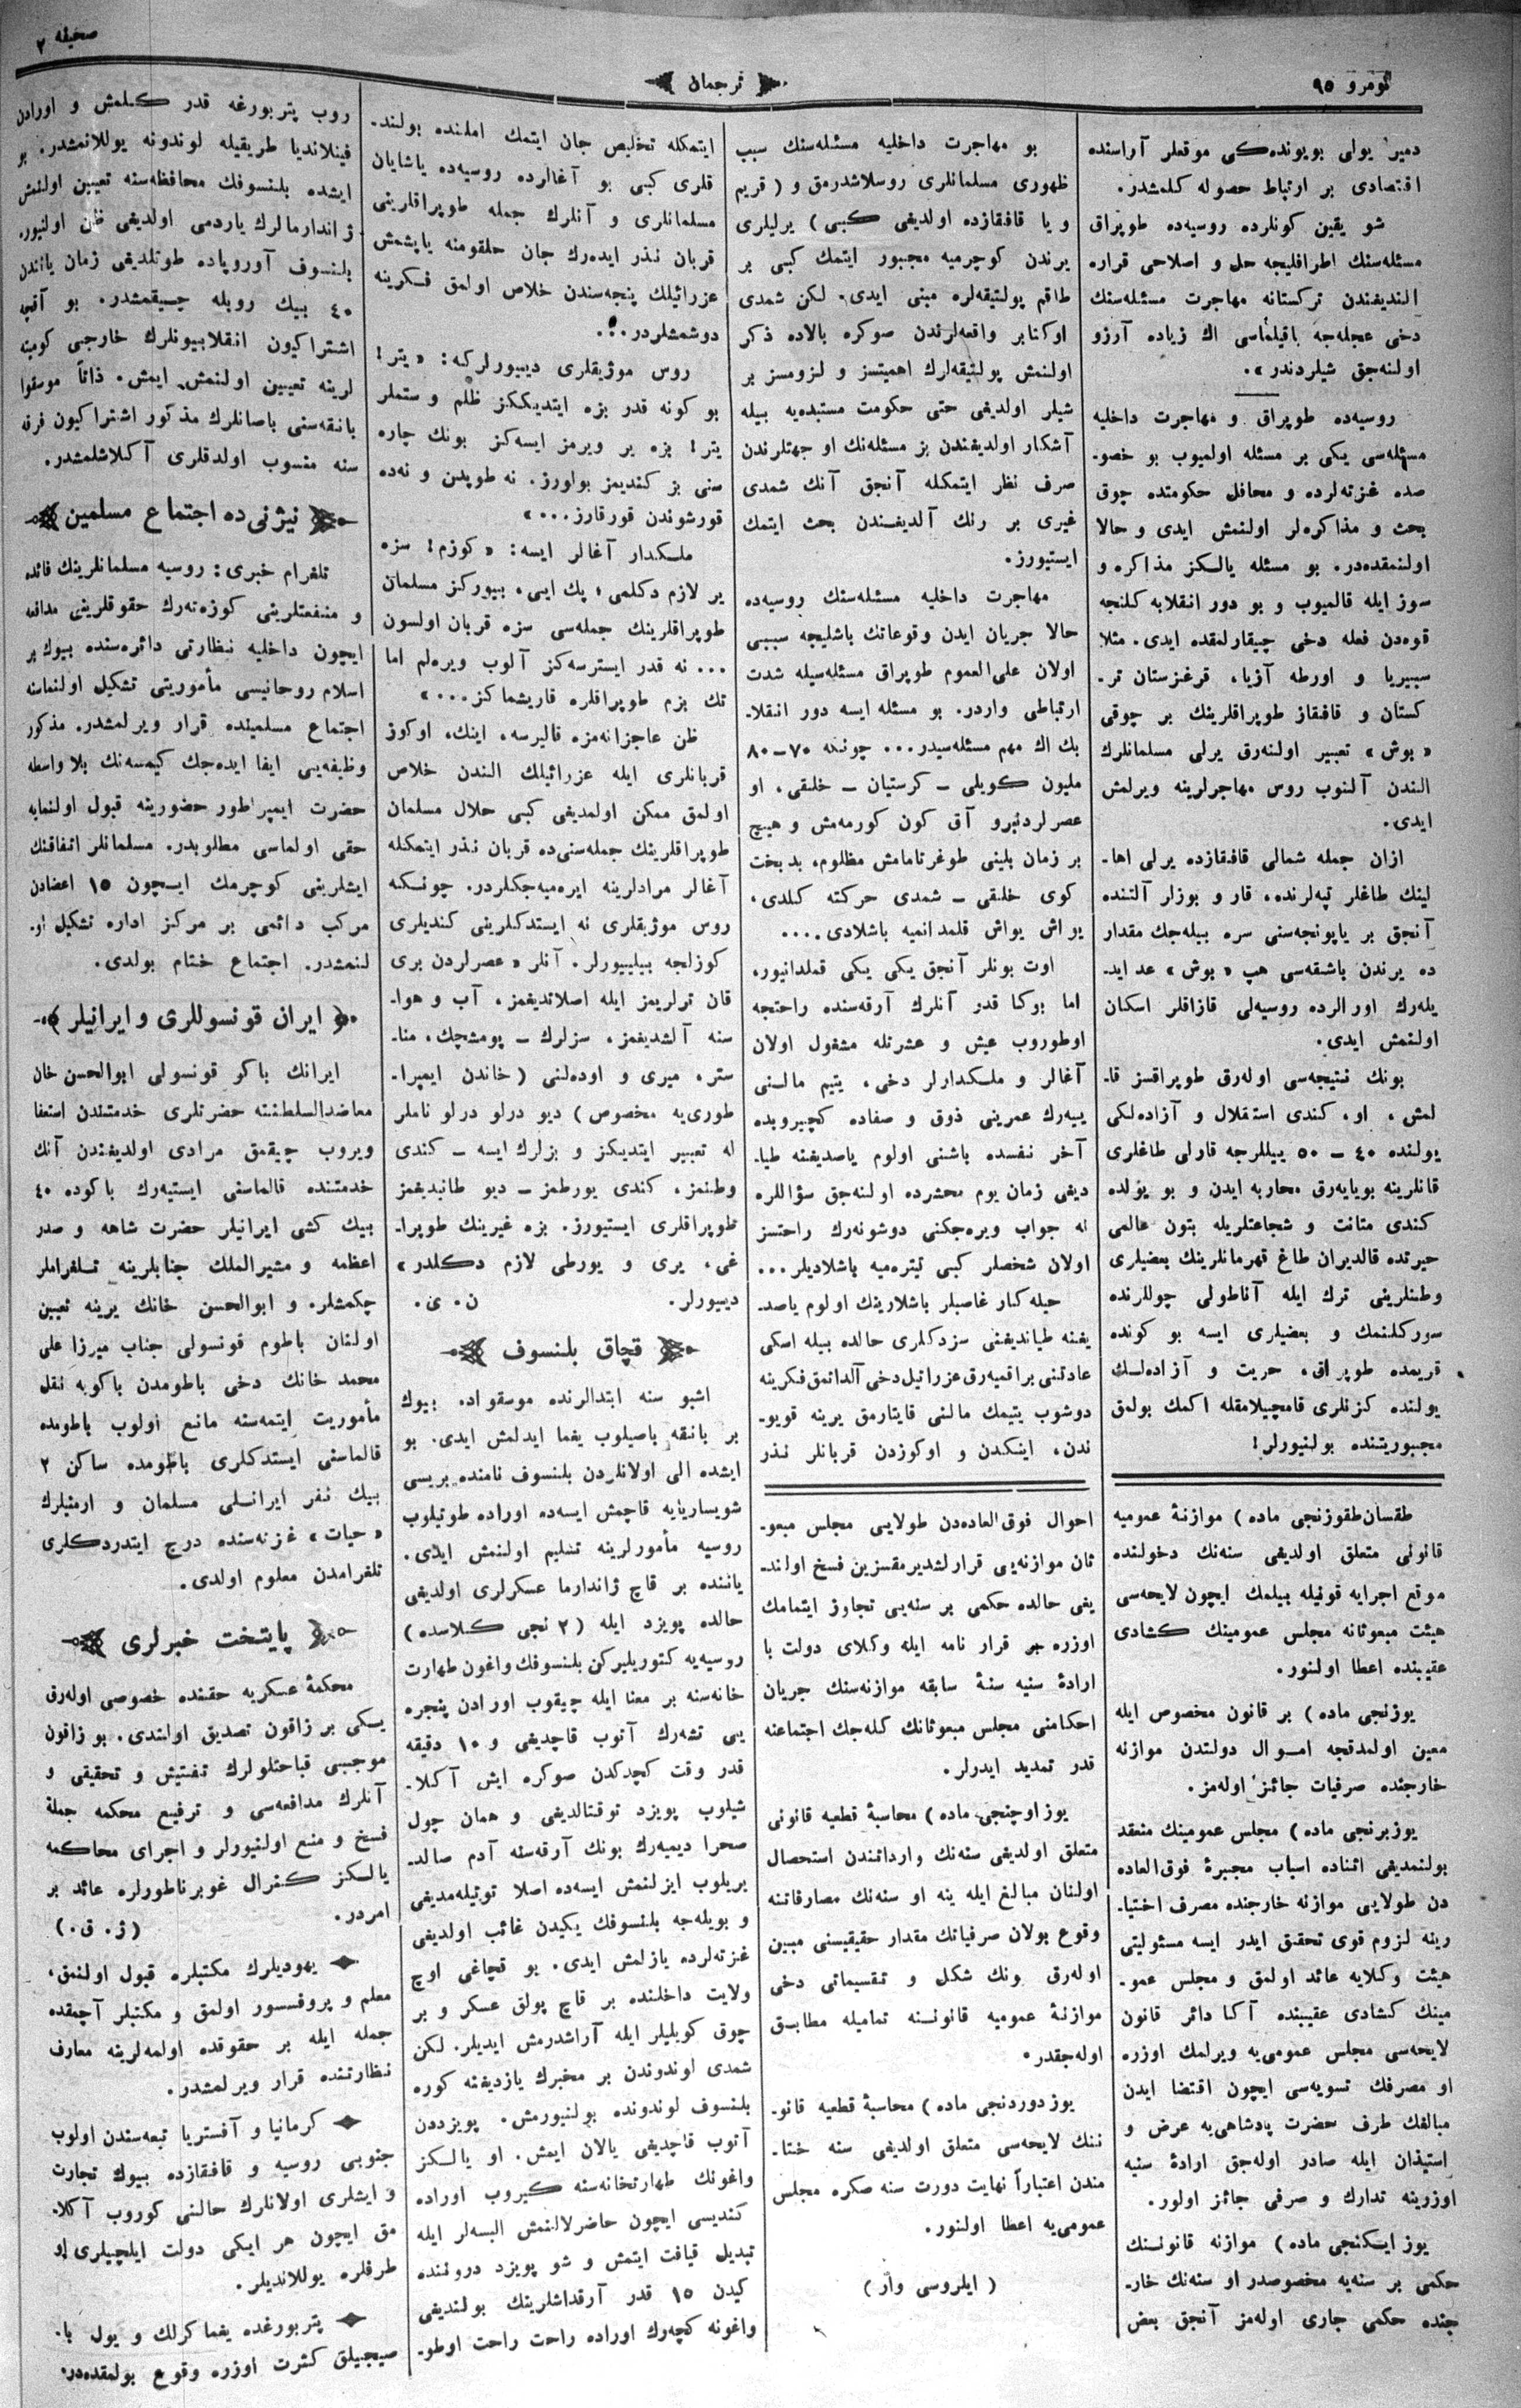 نومرو ٩٥
ترجمان
صحیفه ٢
دمیر یولی بویونده‌کی موقعلر آراسنده
اقتصادی بر ارتباط حصوله کلمشدر.
شو یقین کونلرده روسیه‌ده طوپراق
مسئله‌سنك اطرافلیجه حل و اصلاحی قراره
الندیغندن ترکستانه مهاجرت مسئله‌سنك
دخی عجله‌جه باقیلماسی اك زیاده آرزو
اولنه‌جق شیلردندر».
روسیه‌ده طوپراق و مهاجرت داخلیه
مسئله‌سی یکی بر مسئله اولمیوب بو خصو-
صده غزته‌لرده و محافل حکومتده چوق
بحث و مذاکره‌لر اولنمش ایدی و حالا
اولنمقده‌در. بو مسئله یالکز مذاکره و
سوز ایله قالمیوب و بو دور انقلابه کلنجه
قوه‌دن فعله دخی چیقارلمقده ایدی. مثلا
سیبیریا و اورطه آزیا، قرغزستان تر-
کستان و قافقاز طوپراقلرینك بر چوقی
« بوش » تعبیر اولنه‌رق یرلی مسلمانلرك
الندن آلنوب روس مهاجرلرینه ویرلمش
ایدی.
ازان جمله شمالی قافقازده یرلی اها-
لینك طاغلر تپه‌لرنده، قار و بوزلر آلتنده
آنجق بر یاپونجه‌سنی سره بیله‌جك مقدار
ده یرندن باشقه‌سی هپ « بوش » عد اید-
یله‌رك اورالرده روسیه‌لی قازاقلر اسکان
اولنمش ایدی.
بونك نتیجه‌سی اوله‌رق طوپراقسز قا-
لمش، او، کندی استقلال و آزاده‌لکی
یولنده ٤٠ – ٥٠ ییللرجه قارلی طاغلری
قانلرینه بویایه‌رق محاربه ایدن و بو یولده
کندی متانت و شجاعتلریله بتون عالمی
حیرتده قالدیران طاغ قهرمانلرینك بعضیلری
وطنلرینی ترك ایله آناطولی چوللرنده
سورکلنمك و بعضیلری ایسه بو کونده
قریمده طوپراق، حریت و آزاده‌لك
یولنده کزنلری قامچیلامقله اکمك بولمق
مجبوریتنده بولنیورلر!
طقسان طقوزنجی ماده ) موازنهٔ عمومیه
قانونی متعلق اولدیغی سنه‌نك دخولنده
موقع اجرایه قونیله بیلمك ایچون لایحه‌سی
هیئت مبعوثانه مجلس عمومینك کشادی
عقیبنده اعطا اولنور.
یوزنجی ماده ) بر قانون مخصوص ایله
معین اولمدقجه اموال دولتدن موازنه
خارجنده صرفیات جائز اوله‌مز.
یوزبرنجی ماده ) مجلس عمومینك منعقد
بولنمدیغی اثناده اسباب مجبرهٔ فوق‌العاده
دن طولایی موازنه خارجنده مصرف اختیا-
رینه لزوم قوی تحقق ایدر ایسه مسئولیتی
هیئت وکلایه عائد اولمق و مجلس عمو-
مینك کشادی عقیبنده آکا دائر قانون
لایحه‌سی مجلس عمومی‌یه ویرلمك اوزره
او مصرفك تسویه‌سی ایچون اقتضا ایدن
مبالغك طرف حضرت پادشاهی‌یه عرض و
استیذان ایله صادر اوله‌جق ارادهٔ سنیه
اوزرینه تدارك و صرفی جائز اولور.
یوز ایکنجی ماده ) موازنه قانوننك
حکمی بر سنه‌یه مخصوصدر او سنه‌نك خار-
جنده حکمی جاری اوله‌مز آنجق بعض
بو مهاجرت داخلیه مسئله‌سنك سبب
ظهوری مسلمانلری روسلاشدرمق و ( قریم
و یا قافقازده اولدیغی کبی ) یرلیلری
یرندن کوچرمیه مجبور ایتمك کبی بر
طاقم پولتیقه‌لره مبنی ایدی. لکن شمدی
اوکتابر واقعه‌لرندن صوکره بالاده ذکر
اولنمش پولتیقه‌لرك اهمیتسز و لزومسز بر
شیلر اولدیغی حتی حکومت مستبده‌یه بیله
آشکار اولدیغندن بز مسئله‌نك او جهتلرندن
صرف نظر ایتمکله آنجق آنك شمدی
غیری بر رنك آلدیغندن بحث ایتمك
ایستیورز.
مهاجرت داخلیه مسئله‌سنك روسیه‌ده
حالا جریان ایدن وقوعاتك باشلیجه سببی
اولان علی‌العموم طوپراق مسئله‌سیله شدت
ارتباطی واردر. بو مسئله ایسه دور انقلا-
بك اك مهم مسئله‌سیدر... چونکه ٧٠–٨٠
ملیون کویلی – کرستیان – خلقی، او
عصرلردنبرو آق کون کورمه‌مش و هیچ
بر زمان بلینی طوغرتامامش مظلوم، بدبخت
کوی خلقی – شمدی حرکته کلدی،
یواش یواش قلمدانمیه باشلادی....
اوت بونلر آنجق یکی یکی قملدانیور،
اما بوکا قدر آنلرك آرقه‌سنده راحتجه
اوطوروب عیش و عشرتله مشغول اولان
آغالر و ملکدارلر دخی، یتیم مالنی
ییه‌رك عمرینی ذوق و صفاده کچیروبده
آخر نفسده باشنی اولوم یاصدیغنه طیا-
دیغی زمان یوم محشرده اولنه‌جق سؤاللره
نه جواب ویره‌جکنی دوشونه‌رك راحتسز
اولان شخصلر کبی تیتره‌میه باشلادیلر...
حیله‌کار غاصبلر باشلارینك اولوم یاصد-
یغنه طیاندیغنی سزدکلری حالده بیله اسکی
عادتنی براقمیه‌رق عزرائیل دخی آلداتمق فکرینه
دوشوب یتیمك مالنی قایتارمق یرینه قویو-
ندن، اینکدن و اوکوزدن قربانلر نذر
احوال فوق‌العاده‌دن طولایی مجلس مبعو-
ثان موازنه‌یی قرارلشدیرمقسزین فسخ اولند-
یغی حالده حکمی بر سنه‌یی تجاوز ایتمامك
اوزره بر قرار نامه ایله وکلای دولت با
ارادهٔ سنیه سنهٔ سابقه موازنه‌سنك جریان
احکامنی مجلس مبعوثانك کله‌جك اجتماعنه
قدر تمدید ایدرلر.
یوز اوچنجی ماده ) محاسبهٔ قطعیه قانونی
متعلق اولدیغی سنه‌نك وارداتندن استحصال
اولنان مبالغ ایله ینه او سنه‌نك مصارفاتنه
وقوع بولان صرفیاتك مقدار حقیقیسنی مبین
اوله‌رق بونك شکل و تقسیماتی دخی
موازنهٔ عمومیه قانونینه تمامیله مطابق
اوله‌جقدر.
یوز دوردنجی ماده ) محاسبهٔ قطعیه قانو-
ننك لایحه‌سی متعلق اولدیغی سنه ختا-
مندن اعتباراً نهایت دورت سنه صکره مجلس
عمومی‌یه اعطا اولنور.
( ایلروسی وار )
ایتمکله تخلیص جان ایتمك املنده بولند-
قلری کبی بو آغالرده روسیه‌ده یاشایان
مسلمانلری و آنلرك جمله طوپراقلرینی
قربان نذر ایده‌رك جان حلقومنه یاپشمش
عزرائیلك پنجه‌سندن خلاص اولمق فکرینه
دوشمشلردر...
روس موژیقلری دییورلرکه: « یتر!
بو کونه قدر بزه ایتدیککز ظلم و ستملر
یتر! بزه یر ویرمز ایسه‌کز بونك چاره
سنی بز کندیمز بولورز. نه طوپدن و نه‌ده
قورشوندن قورقارز... »
ملکدار آغالر ایسه: « کوزم! سزه
یر لازم دکلمی؟ پك ایی، بیورکز مسلمان
طوپراقلرینك جمله‌سی سزه قربان اولسون
... نه قدر ایسترسه‌کز آلوب ویره‌لم اما
تك بزم طوپراقلره قاریشماکز... »
ظن عاجزانه‌مزه قالیرسه، اینك، اوکوز
قربانلری ایله عزرائیلك الندن خلاص
اولمق ممکن اولمدیغی کبی حلال مسلمان
طوپراقلرینك جمله‌سنی‌ده قربان نذر ایتمکله
آغالر مرادلرینه ایره‌میه‌جکلردر. چونکه
روس موژیقلری نه ایستدکلرینی کندیلری
کوزلجه بیلییورلر. آنلر « عصرلردن بری
قان ترلریمز ایله اصلاتدیغمز، آب و هوا-
سنه آلشدیغمز، سزلرك – پومشچك، منا-
ستر، میری و اوده‌لنی ( خاندن ایمپرا-
طوری‌یه مخصوص ) دیو درلو درلو ناملر
له تعبیر ایتدیکز و بزلرك ایسه – کندی
وطنمز، کندی یورطمز – دیو طانیدیغمز
طوپراقلری ایستیورز. بزه غیرینك طوپرا-
غی، یری و یورطی لازم دکلدر »
دییورلر. ن. ی.
قچاق بلنسوف
اشبو سنه ابتدالرنده موسقواده بیوك
بر بانقه باصیلوب یغما ایدلمش ایدی. بو
ایشده الی اولانلردن بلنسوف نامنده بریسی
شویساریایه قاچمش ایسه‌ده اوراده طوتیلوب
روسیه مأمورلرینه تسلیم اولنمش ایدی.
یاننده بر قاچ ژاندارما عسکرلری اولدیغی
حالده پویزد ایله ( ٢ نجی کلاسده )
روسیه‌یه کتوریلیرکن بلنسوفك واغون طهارت
خانه‌سنه بر معنا ایله چیقوب اورادن پنجره
یی تشه‌رك آتوب قاچدیغی و ١٠ دقیقه
قدر وقت کچدکدن صوکره ایش آکلا-
شیلوب پویزد توقتالدیغی و همان چول
صحرا دیمیه‌رك بونك آرقه‌سنه آدم صالد-
یریلوب ایزلنمش ایسه‌ده اصلا توتیله‌مدیغی
و بویله‌جه بلنسوفك یکیدن غائب اولدیغی
غزته‌لرده یازلمش ایدی. بو قچاغی اوچ
ولایت داخلنده بر قاچ پولق عسکر و بر
چوق کویلیلر ایله آراشدرمش ایدیلر. لکن
شمدی لوندوندن بر مخبرك یازدیغنه کوره
بلنسوف لوندونده بولنیورمش. پویزددن
آتوب قاچدیغی یالان ایمش. او یالکز
واغونك طهارتخانه‌سنه کیروب اوراده
کندیسی ایچون حاضرلالنمش البسه‌لر ایله
تبدیل قیافت ایتمش و شو پویزد دروننده
کیدن ١٥ قدر آرقداشلرینك بولندیغی
واغونه کچه‌رك اوراده راحت راحت اوطو-
روب پتربورغه قدر کلمش و اورادن
فینلاندیا طریقیله لوندونه یوللانمشدر. بر
ایشده بلنسوفك محافظه‌سنه تعیین اولنمش
ژاندارمالرك یاردمی اولدیغی ظن اولنیور.
بلنسوف آوروپاده طوتلدیغی زمان یانندن
٤٠ بیك روبله چیقمشدر. بو آقچه
اشتراکیون انقلابیونلرك خارجی کومیته
لرینه تعیین اولنمش ایمش. ذاتاً موسقوا
بانقه‌سنی باصانلرك مذکور اشتراکیون فرقه
سنه منسوب اولدقلری آکلاشلمشدر.
نیژنی‌ده اجتماع مسلمین
تلغرام خبری: روسیه مسلمانلرینك فائده
و منفعتلرینی کوزه‌ته‌رك حقوقلرینی مدافعه
ایچون داخلیه نظارتی دائره‌سنده بیوك بر
اسلام روحانیسی مأموریتی تشکیل اولنماسنه
اجتماع مسلمینده قرار ویرلمشدر. مذکور
وظیفه‌یی ایفا ایده‌جك کیمسه‌نك بلا واسطه
حضرت ایمپراطور حضورینه قبول اولنمایه
حقی اولماسی مطلوبدر. مسلمانلر اتفاقنك
ایشلرینی کوچرمك ایچون ١٥ اعضادن
مرکب دائمی بر مرکز اداره تشکیل او-
لنمشدر. اجتماع ختام بولدی.
ایران قونسوللری و ایرانیلر
ایرانك باکو قونسولی ابوالحسن خان
معاضدالسلطنه حضرتلری خدمتندن استعفا
ویروب چیقمق مرادی اولدیغندن آنك
خدمتنده قالماسنی ایستیه‌رك باکوده ٤٠
بیك کشی ایرانیلر حضرت شاهه و صدر
اعظمه و مشیرالملك جنابلرینه تلغراملر
چکمشلر. و ابوالحسن خانك یرینه تعیین
اولنان باطوم قونسولی جناب میرزا علی
محمد خانك دخی باطومدن باکویه نقل
مأموریت ایتمه‌سنه مانع اولوب باطومده
قالماسنی ایستدکلری باطومده ساکن ٢
بیك نفر ایرانلی مسلمان و ارمنیلرك
« حیات » غزته‌سنده درج ایتدردکلری
تلغرامدن معلوم اولدی.
پایتخت خبرلری
محکمهٔ عسکریه حقنده خصوصی اوله‌رق
یکی بر زاقون تصدیق اولندی. بو زاقون
موجبی قباحتلولرك تفتیش و تحقیقی و
آنلرك مدافعه‌سی و ترفیع محکمه جملهٔ
فسخ و منع اولنیورلر و اجرای محاکمه
یالکز کنرال غوبرناطورلره عائد بر
امردر. (ژ. ق.)
یهودیلرك مکتبلره قبول اولنمق،
معلم و پروفسسور اولمق و مکتبلر آچمقده
جمله ایله بر حقوقده اولمه‌لرینه معارف
نظارتنده قرار ویرلمشدر.
کرمانیا و آفستریا تبعه‌سندن اولوب
جنوبی روسیه و قافقازده بیوك تجارت
و ایشلری اولانلرك حالنی کوروب آکلا-
مق ایچون هر ایکی دولت ایلچیلری او
طرفلره یوللاندیلر.
پتربورغده یغماکرلك و یول با-
صیجیلق کثرت اوزره وقوع بولمقده‌در.